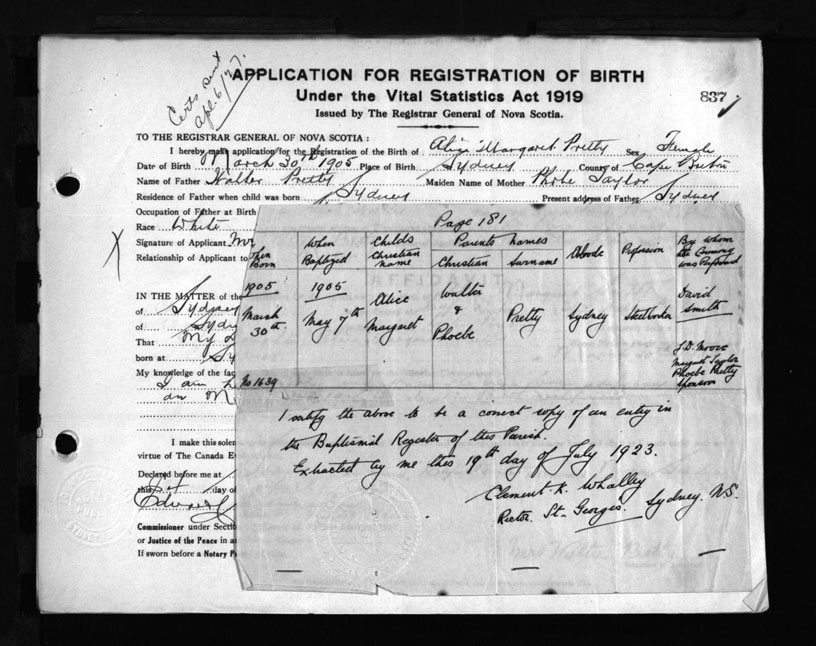 Certs sent
Apl. 6/27.
APPLICATION FOR REGISTRATION OF BIRTH
Under the Vital Statistics Act 1919
837
Issued by The Registrar General of Nova Scotia.
TO THE REGISTRAR GENERAL OF NOVA SCOTIA :
I hereby make application for the Registration of the Birth of Alice Margaret Pretty Sex Female
Date of Birth March 30th 1905 Place of Birth Sydney County of Cape Breton
Name of Father Walter Pretty Maiden Name of Mother Phebe Taylor
Residence of Father when child was born Sydney Present address of Father Sydney
Occupation of Father at Birth
Race White
Signature of Applicant Mrs
Relationship of Applicant to
IN THE MATTER of the
of Sydney
of Sydn
That My
born at Sy
My knowledge of the fac
I am
an
I make this solen
virtue of The Canada Ev
Declared before me at
this day of
Edward
Commissioner under Secti
or Justice of the Peace in a
If sworn before a Notary P
Page 181
When Born When Baptized Childs Christian name Parents names Christian Surname Abode Profession By whom the Ceremony was Performed
1905 March 30th. 1905 May 7th Alice Margaret Walter & Phoebe Pretty Sydney Steelworker David Smith
J. D. Moore
Margaret Taylor
Phoebe Pretty
Sponsors
No 1639
I certify the above to be a correct copy of an entry in
the Baptismal Register of this Parish.
Extracted by me this 19th day of July 1923.
Clement K. Whalley
Rector. St. Georges. Sydney. N.S.